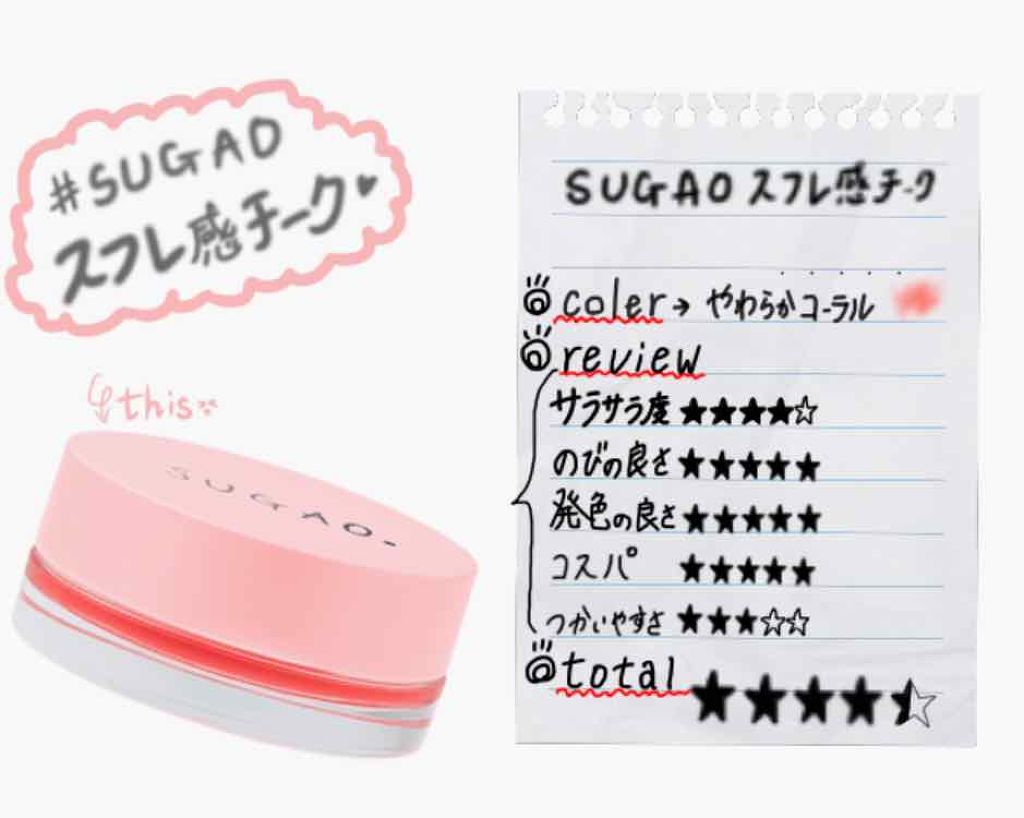 #SUGAO
スフレ感チーク♥
this
SUGAO.
SUGAO スフレ感チーク
coler→ やわらかコーラル
review
サラサラ度 ★★★★☆
のびの良さ ★★★★★
発色の良さ ★★★★★
コスパ ★★★★★
つかいやすさ ★★★☆☆
total ★★★★⯪